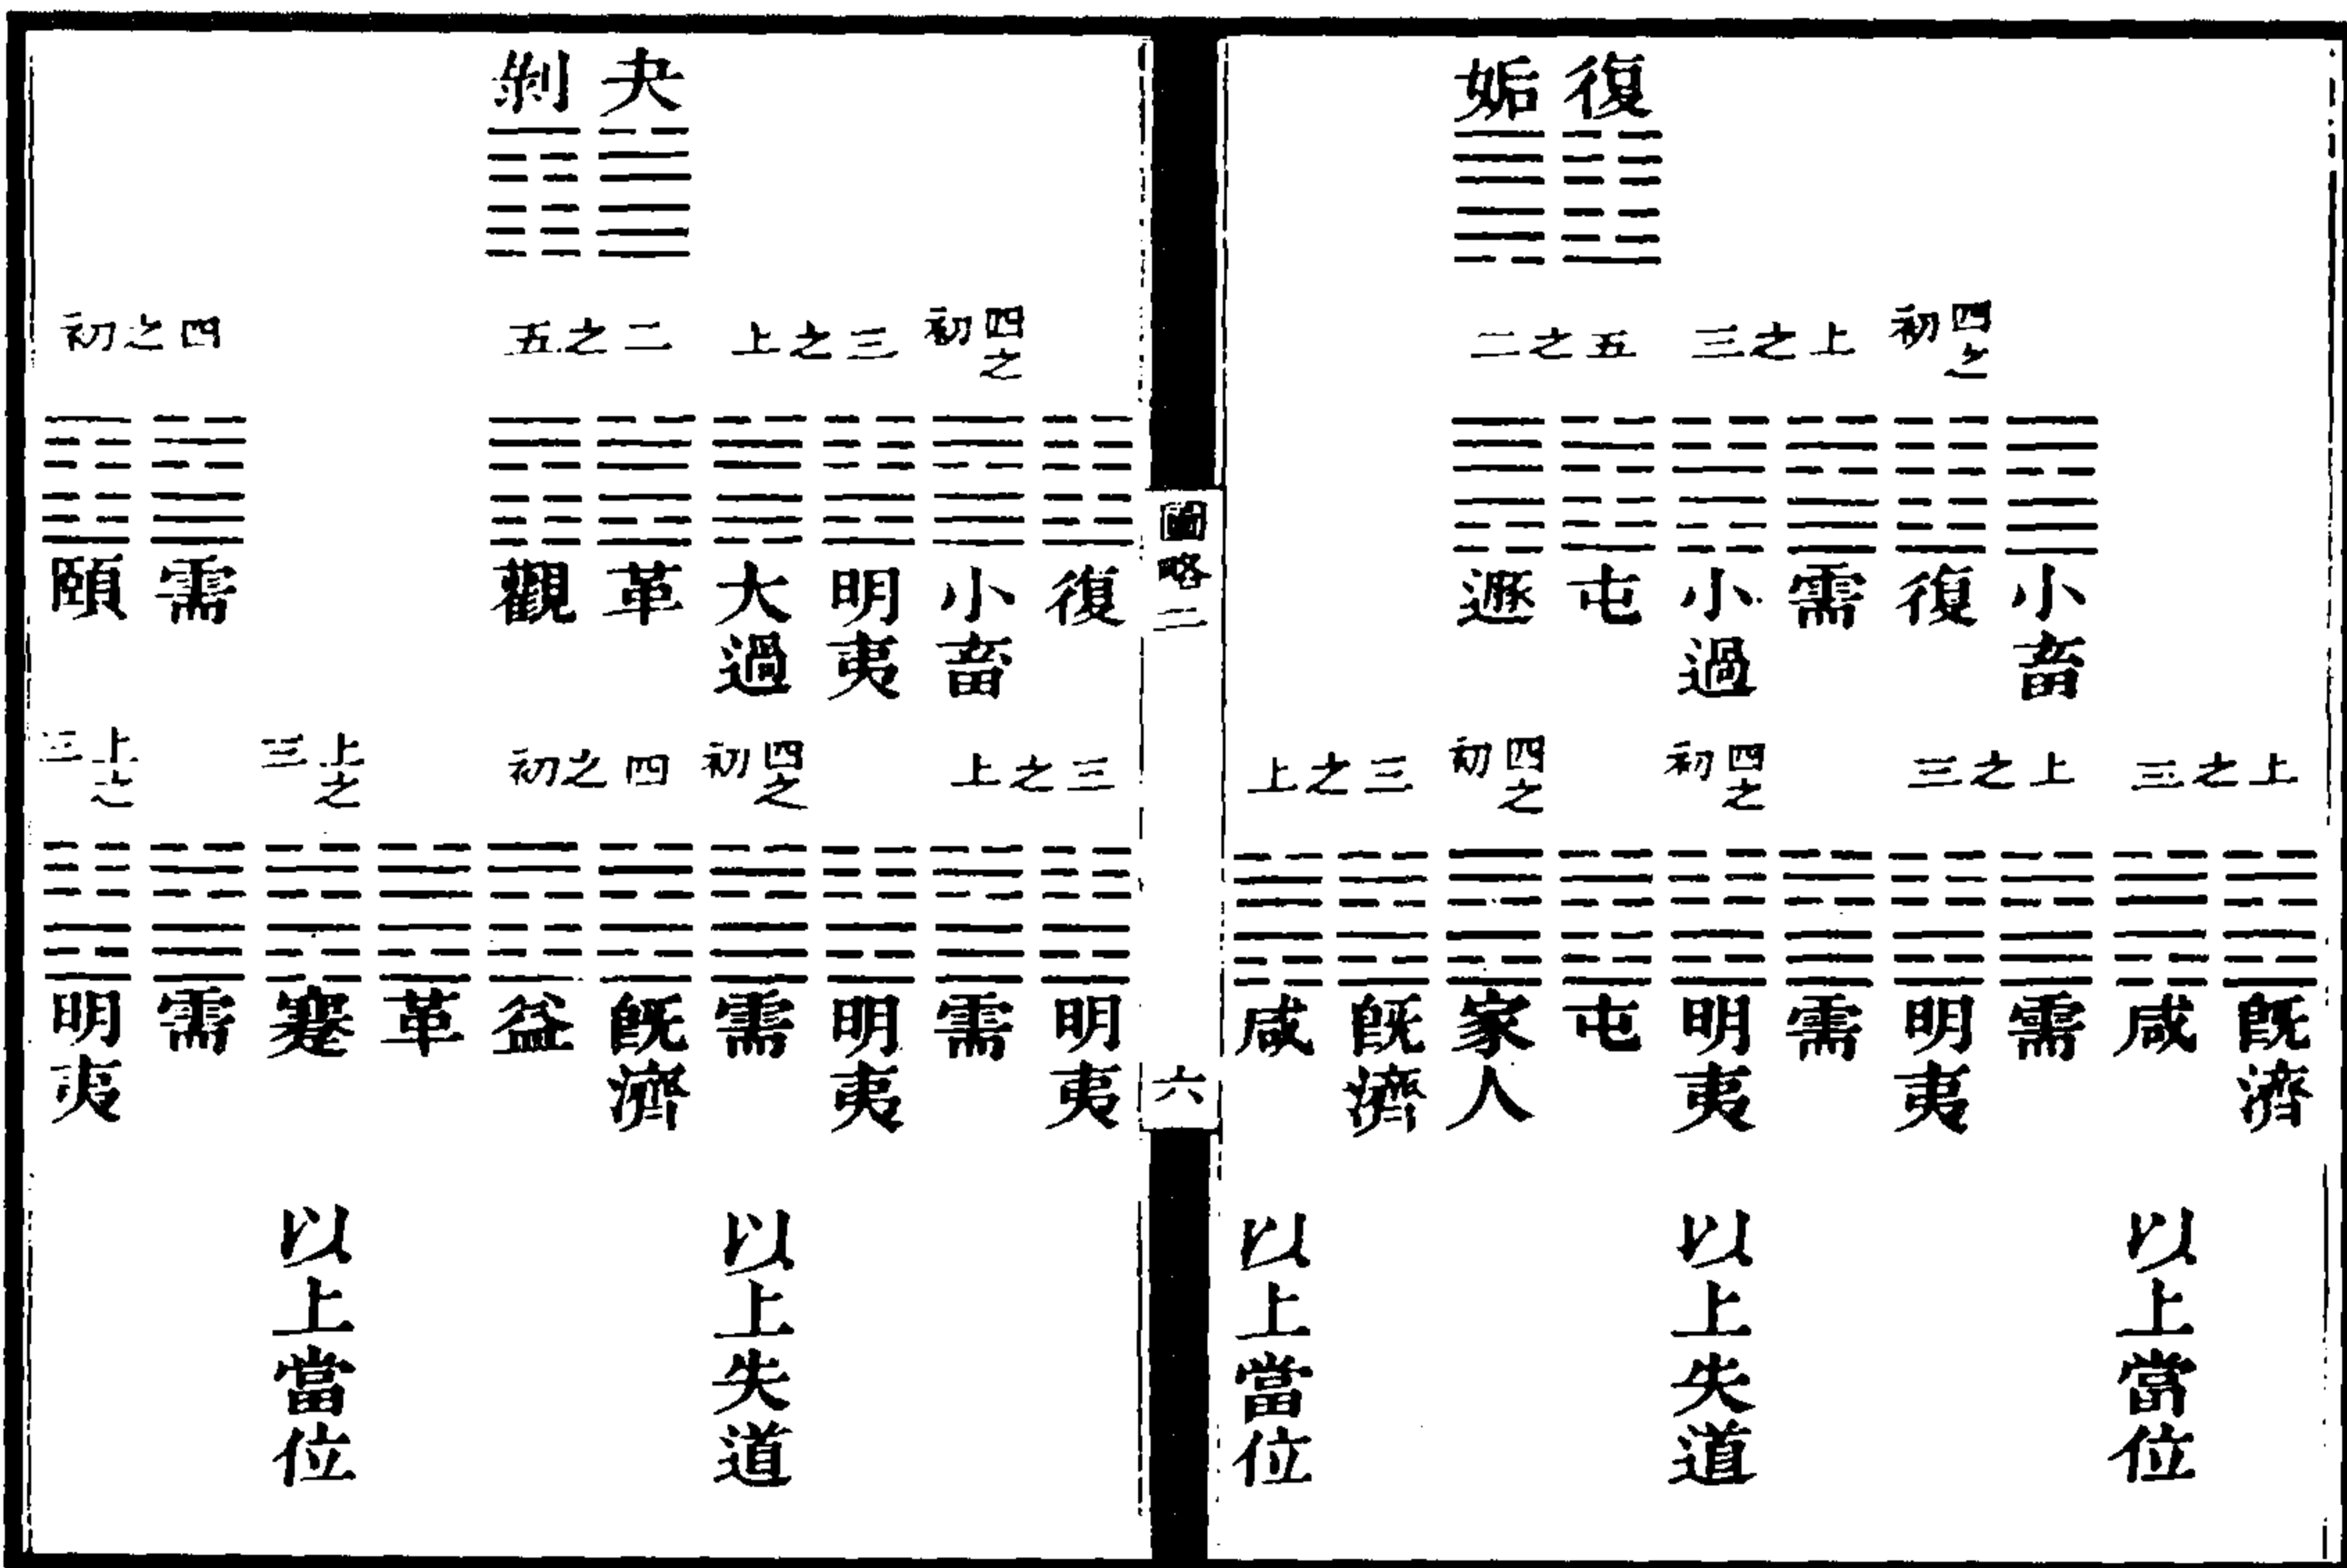 復 姤
四之初 上之三 五之二
小畜 復 需 小過 屯 遯
上之三 上之三 四之初 四之初 三之上
既濟 咸 需 明夷 需 明夷 屯 家人 既濟 咸
以上當位 以上失道 以上當位
圖略二
六
夬 剝
四之初 三之上 二之五 四之初
復 小畜 明夷 大過 革 觀 需 頤
三之上 四之初 四之初 上之三 上之三
明夷 需 明夷 需 既濟 益 革 蹇 需 明夷
以上失道 以上當位